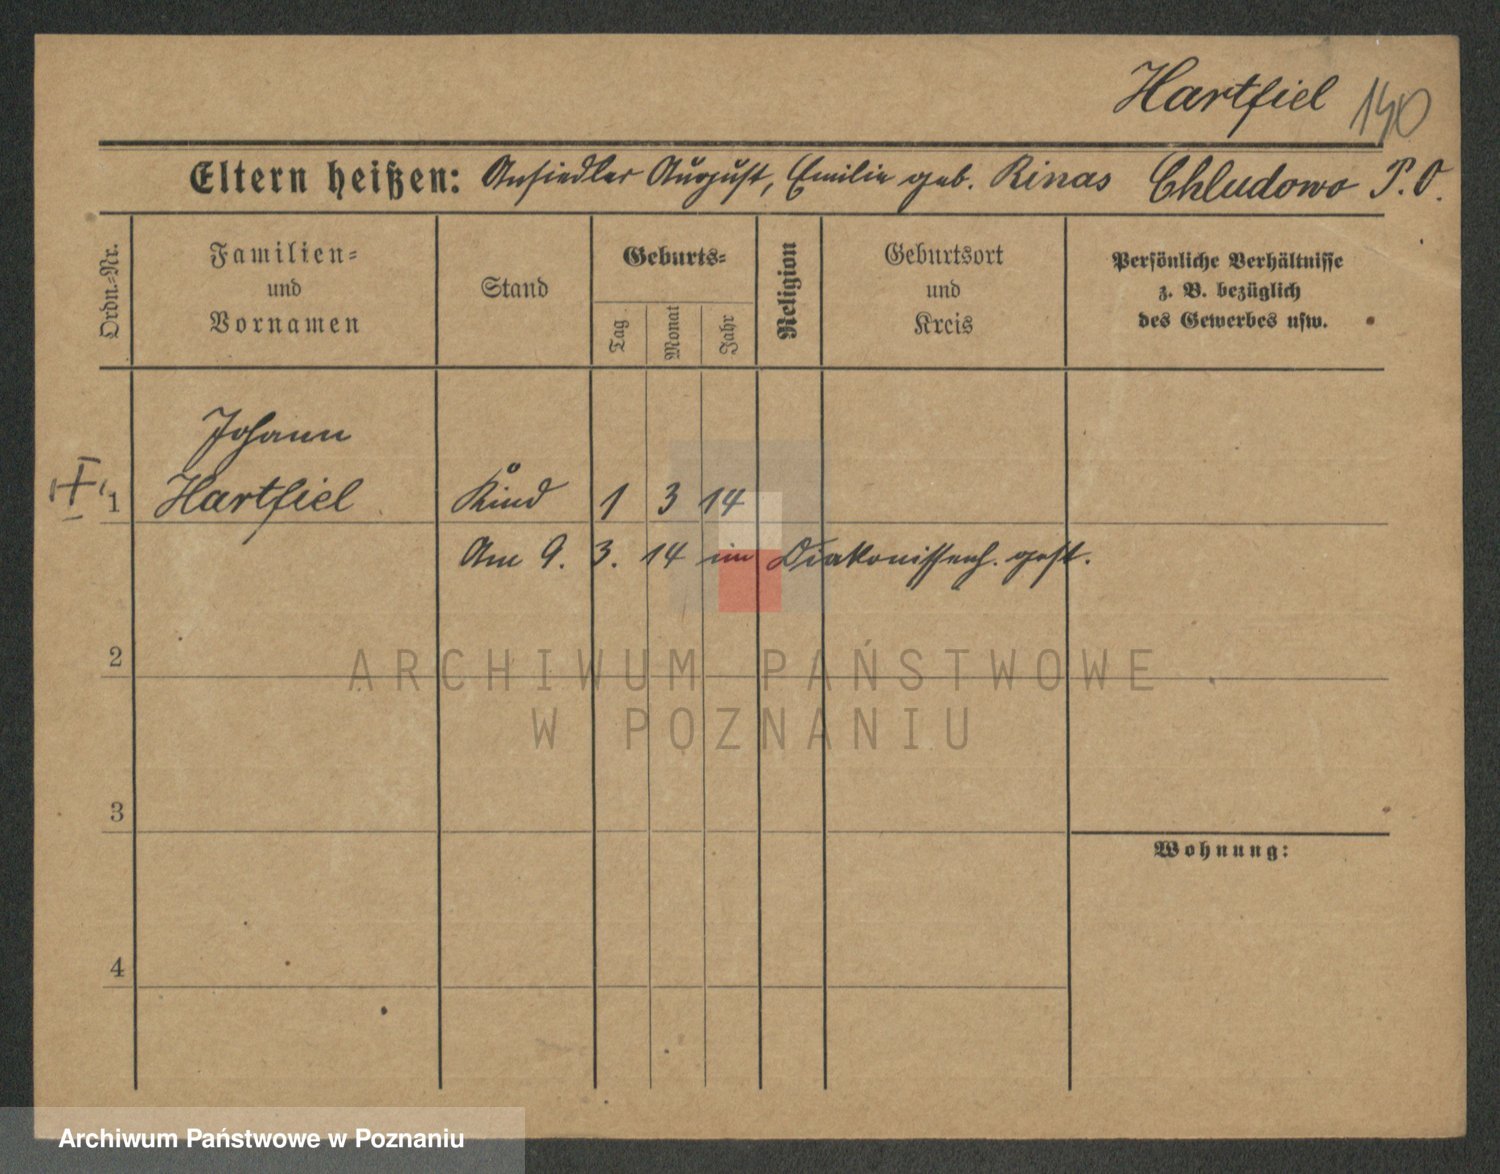 Hartfiel 140
Eltern heißen: Ansiedler August, Emilie geb. Rinas Chludowo P. O.
Ordn.-Nr.
Familien- und Vornamen
Stand
Geburts-
Tag
Monat
Jahr
Religion
Geburtsort und Kreis
Persönliche Verhältnisse
z. B. bezüglich
des Gewerbes usw.
Johann
1 Hartfiel Kind 1 3 14
Am 9. 3. 14 im Diakonissenh. gest.
2
3
Wohnung:
4
ARCHIWUM PAŃSTWOWE
W POZNANIU
Archiwum Państwowe w Poznaniu